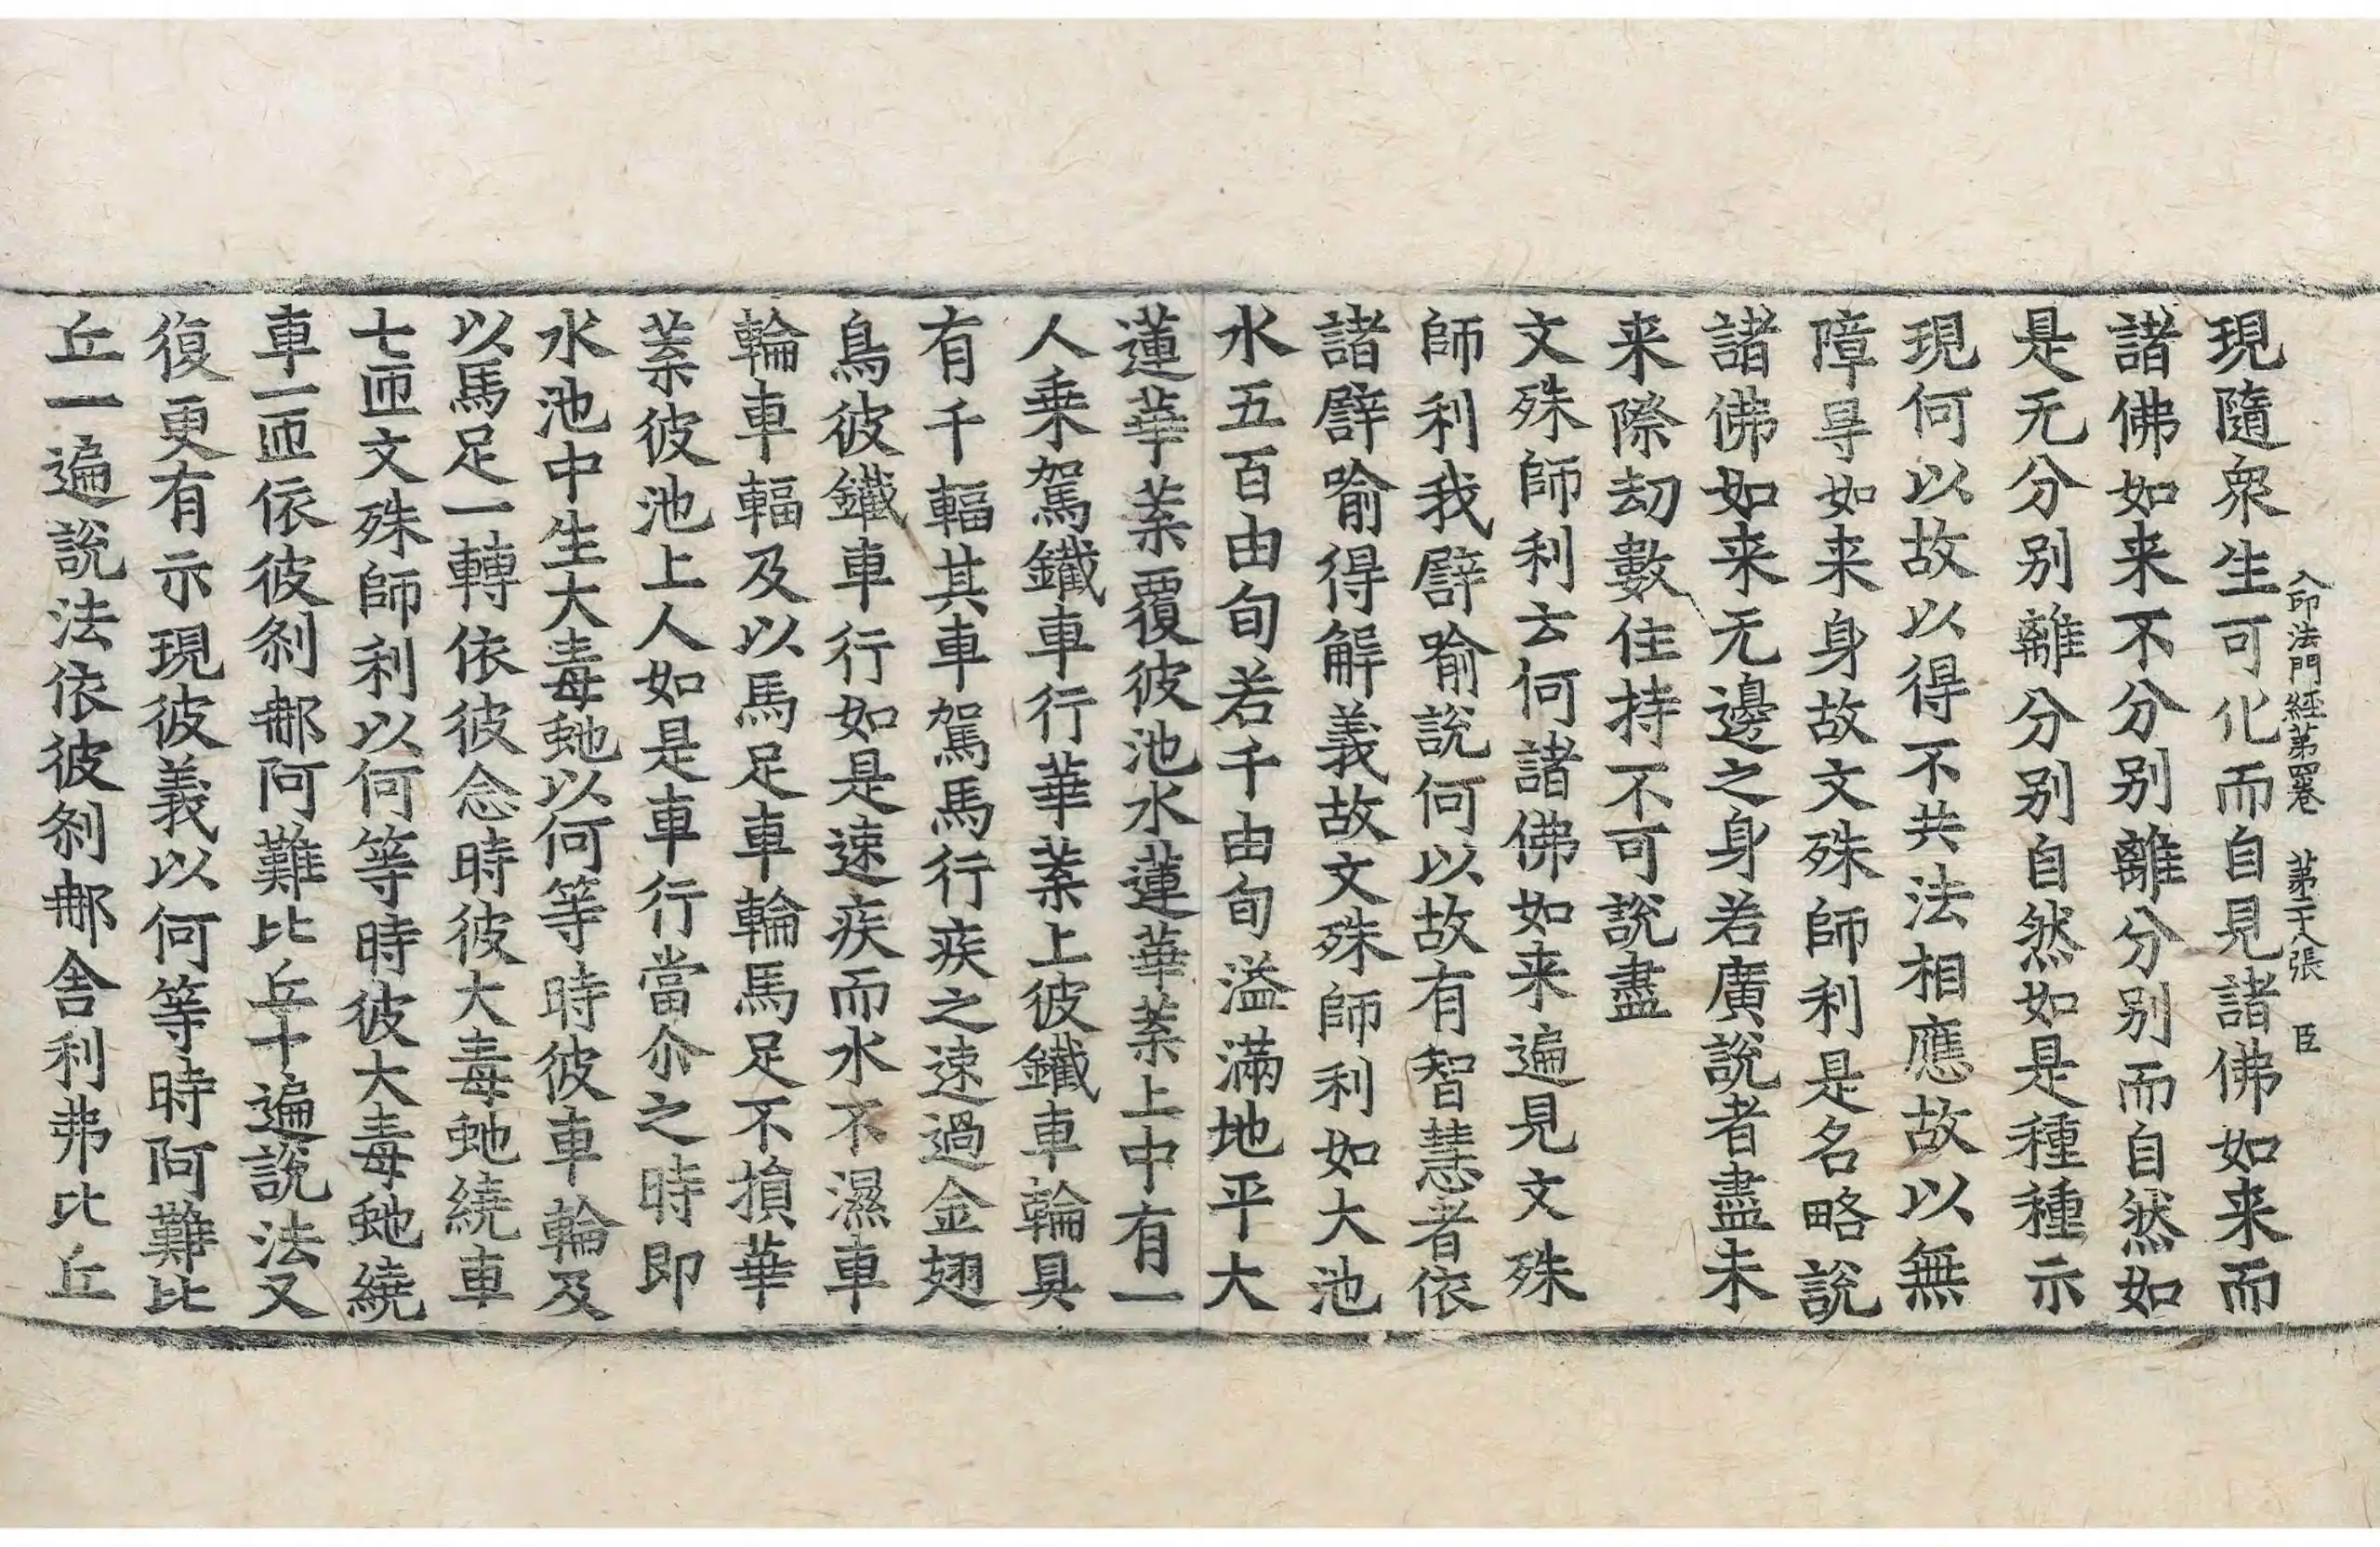 現隨衆生可化而自見諸佛如来而
入印法門經苐四卷 苐二十八張 臣
諸佛如来不分别離分别而自然如
是无分别離分别自然如是種種示
現何以故以得不共法相應故以無
障㝵如来身故文殊師利是名略說
諸佛如来无邊之身若廣說者盡未
来際劫數住持不可說盡
文殊師利云何諸佛如来遍見文殊
師利我譬喻說何以故有智慧者依
諸譬喻得解義故文殊師利如大池
水五百由旬若千由旬溢滿地平大
蓮華葉覆彼池水蓮華葉上中有一
人乗駕鐵車行華葉上彼鐵車輪具
有千輻其車駕馬行疾之速過金翅
鳥彼鐵車行如是速疾而水不濕車
輪車輻及以馬足車輪馬足不損華
葉彼池上人如是車行當尒之時即
水池中生大毒虵以何等時彼車輪及
以馬足一轉依彼念時彼大毒虵繞車
七匝文殊師利以何等時彼大毒虵繞
車一匝依彼剎那阿難比丘十遍說法又
復更有示現彼義以何等時阿難比
丘一遍說法依彼剎那舍利弗比丘